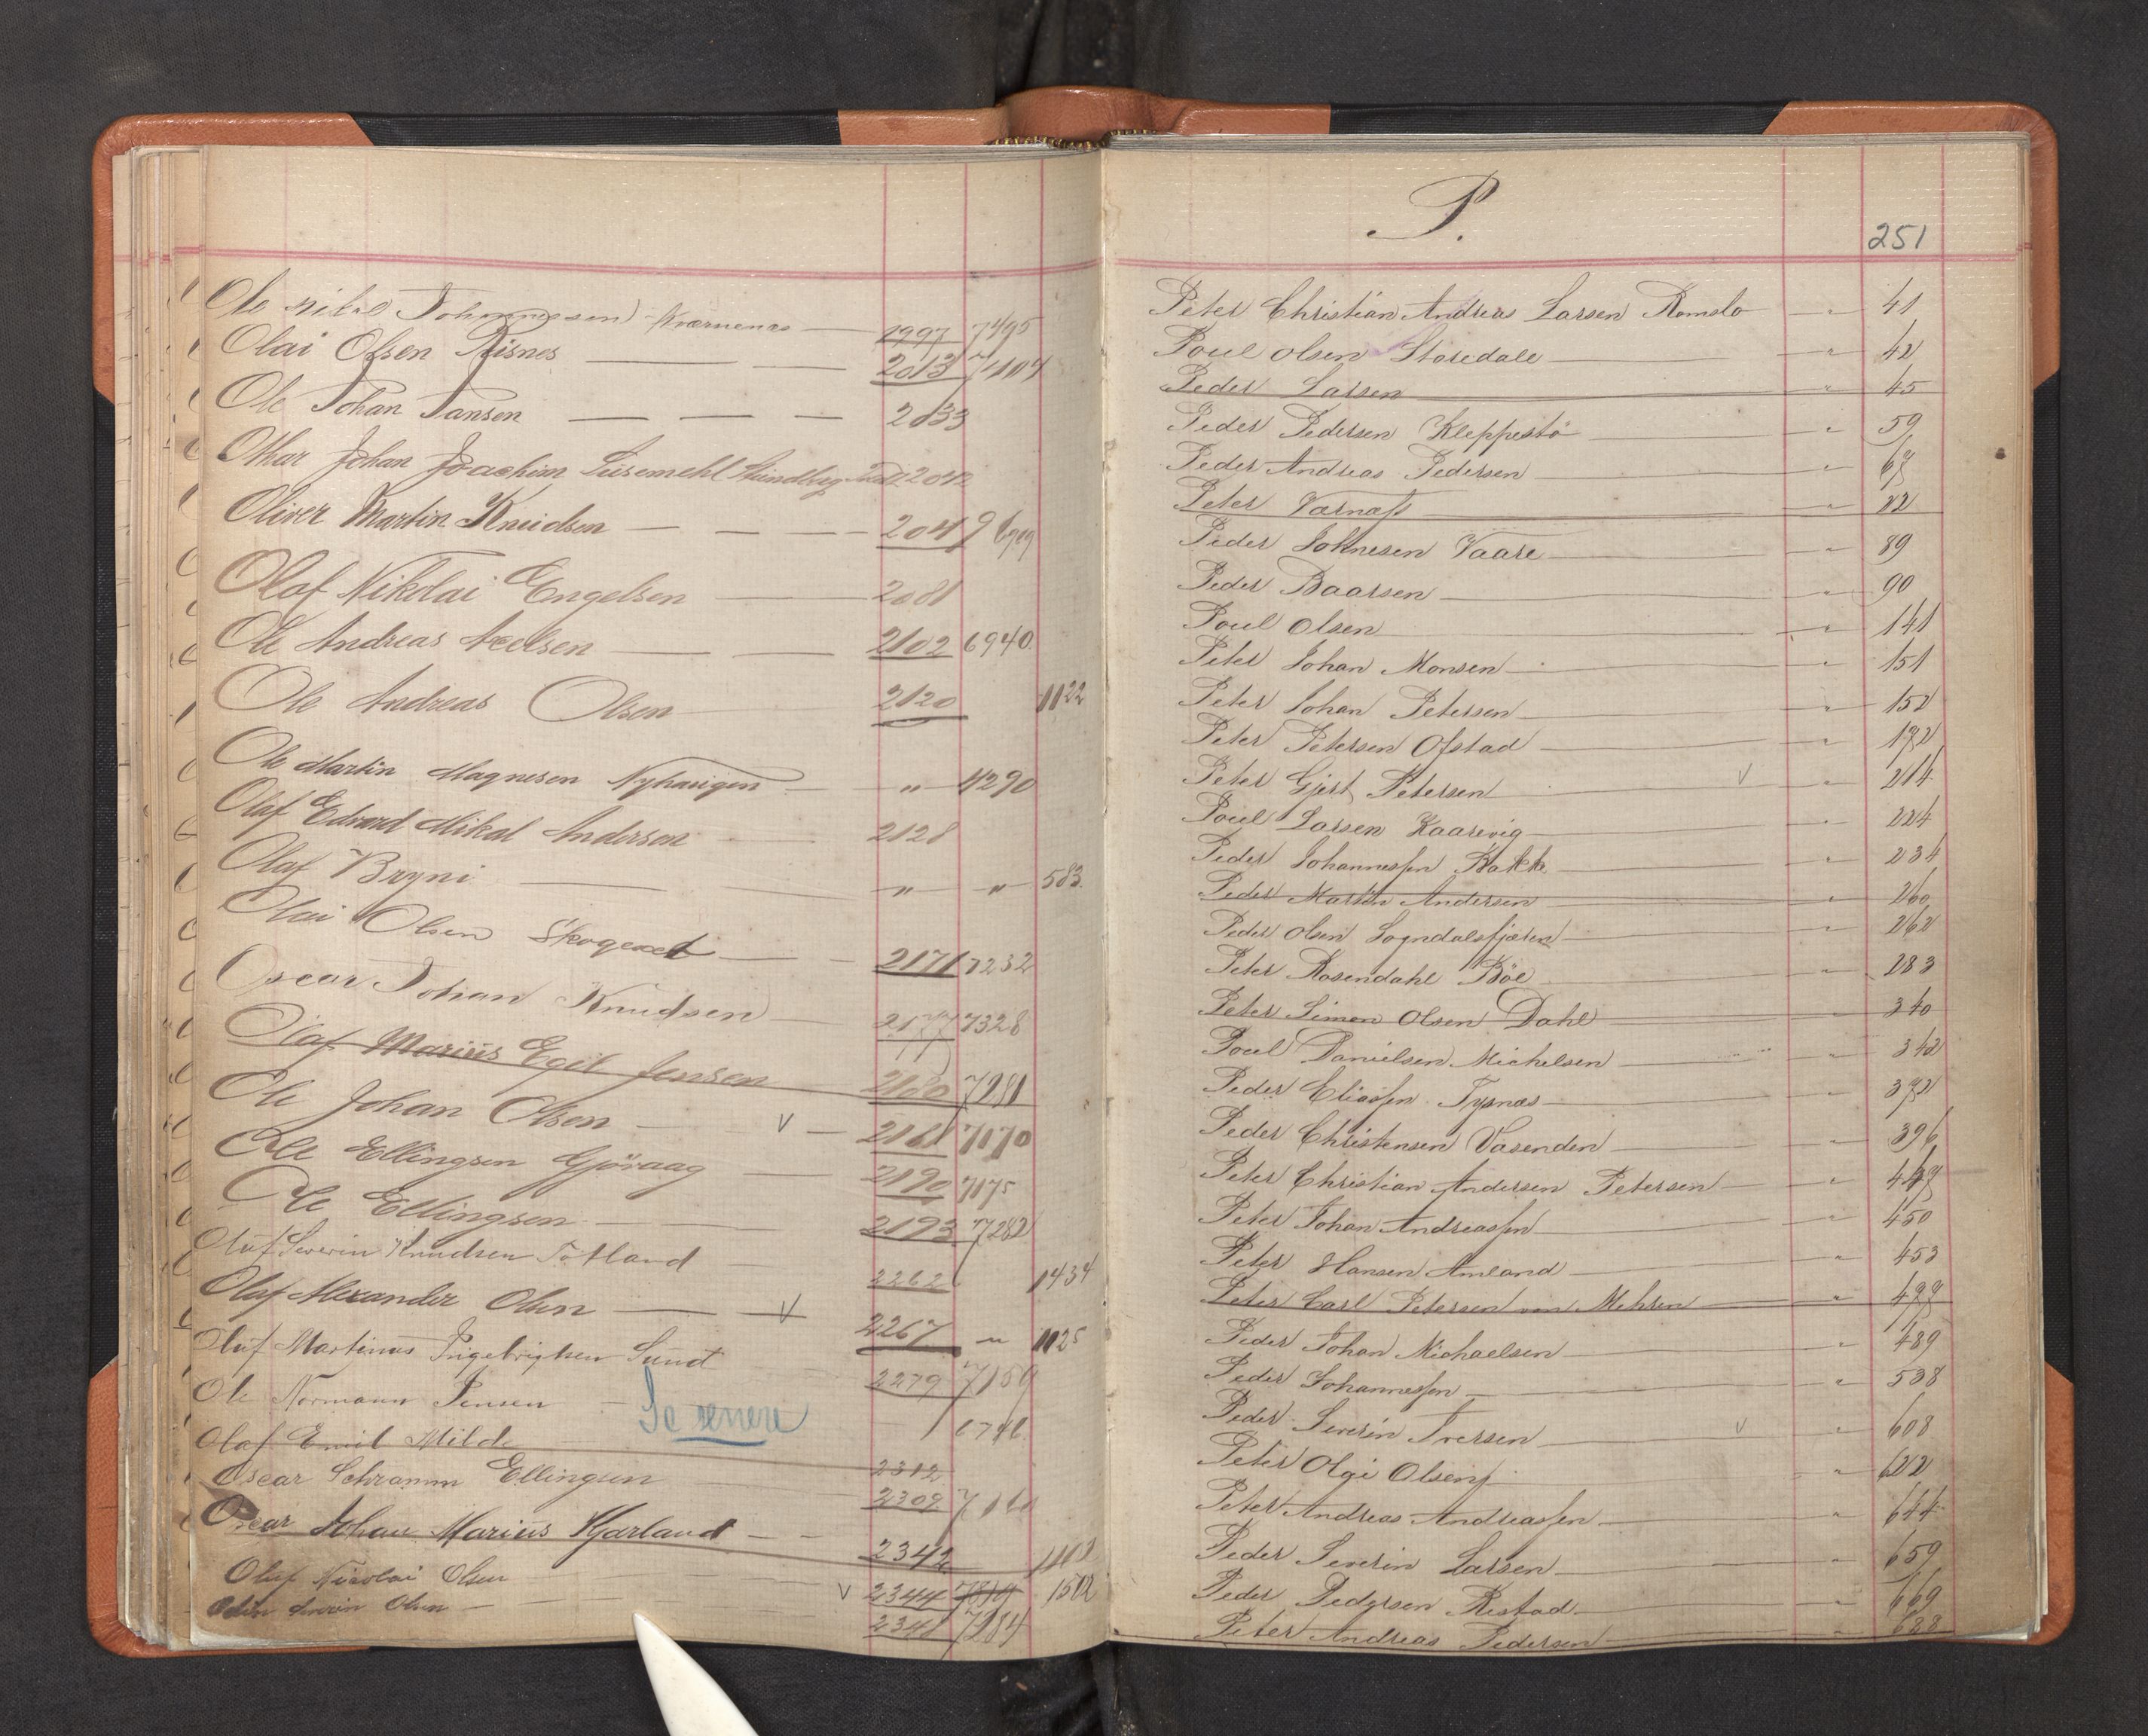 Ole Johannessen Kværnenæs — 1997 7495
Olai Olsen Risnes — — 2013
Ole Johan Jansen — — — 2033
Othar Johan Joachim
Oliver Martin Knudsen — — — 2049 6909
Olaf Nikolai Engelsen — 2081
Ole Andreas Axelsen — — 2102 6940
Ole Andreas Olsen 2120 1122
Ole Martin Magnesen Nyhaugen — " — 4290
Olaf Edvard Mikal Andersen — 2128
Olaf Bryni — — " — " — 583
Olai Olsen Skogexel — — 2171 7232
Oscar Johan Knudsen — 2177 7328
Olaf Marius Egil Jensen 2180 7281
Ole Johan Olsen — V — 2161 7170
Ole Ellingsen Gjøraag — 2190 7175
Ole Ellingsen — 2193 7282
Oluf Severin Knudsen Totland — 2262 1434
Olaf Alexander Olsen — V 2267 " 1125
Oluf Martinus Ingebrigtsen Sund 2279 7159
Ole Normann Jensen
Se senere
Olaf Emil Milde 2312
Oscar Schramm Ellingsen 2309
Oscar Johan Marius Hjarland — — 2342
Oluf Nicolai Olsen — V 2344 7819 1502
Severin Olsen — 2348 7284
P.
251
Peter Christian Andreas Larsen Romslo — " 41
Poul Olsen Storedale — " 42
Peder Larsen — " 45
Peder Pedersen Kleppestø — " 59
Peder Andreas Pedersen — " 67
Peter Varnass
Peder Johnesen Vaare — " 89
Peder Baarsen — " 90
Poul Olsen — " 141
Peter Johan Monsen — " 151
Peter Johan Petersen — " 152
Peter Petersen Ofstad — " 192
Peter Gjert Petersen V " 214
Poul Larsen Kaarevig — " 224
Peder Johannessen Bakke — " 234
Peder Martin Andersen — " 260
Peder Olsen Sogndalsfjæren — " 262
Peter Rosendahl Bøe — " 283
Peter Simon Olsen Dahl — 340
Poul Danielsen Michelsen — " 342
Peder Eliassen Tysnæs — " 372
Peder Christensen Vasenden — " 396
Peter Christian Andersen Petersen — "
Peter Johan Andreassen — " 450
Peter Hansen Amland — " 453
Peter Carl Petersen von Mehren — " 477
Peder Johan Michaelsen — " 489
Peder Johannessen — " 538
Peder Severin Iversen — V " 608
Peter Olai Olsen — " 622
Peter Andreas Andreassen — " 644
Peder Severin Larsen — " 659
Peder Pedersen Restad — " 669
Peter Andreas Pedersen — " 688